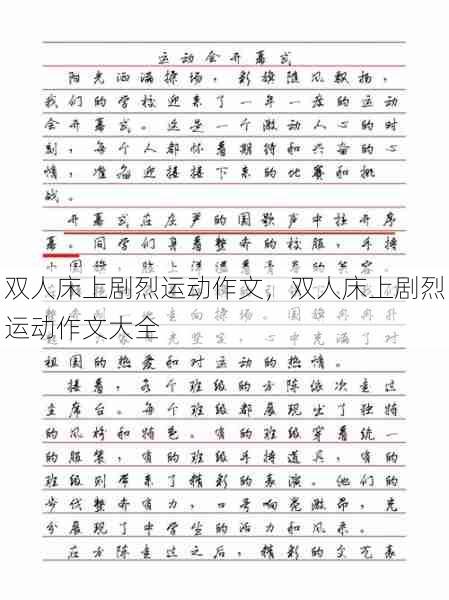 运动会开幕式
阳光洒满操场，彩旗随风飘扬，
我们的学校迎来了一年一度的运动
会开幕式。这是一个激动人心的时
刻，每个人都怀着期待和兴奋的心
情，准备迎接接下来的比赛和挑
战。
开幕式在庄严的国歌声中拉开序
幕。同学们身着整齐的校服，手持
小国旗，脸上洋溢着青春的笑容。
双人床上剧烈运动作文，双人床上剧烈
运动作文大全
祖国的热爱和对运动的热情。
接着，各个班级的方阵依次走过
主席台。每个班级都展现出了独特
的风格和特色。有的班级穿着统一
的服装，有的班级手持道具，有的
班级则带来了精彩的表演。他们的
步伐整齐有力，口号响亮激昂，充
分展现了中学生的活力和风采。
在方阵走过之后，精彩的文艺表